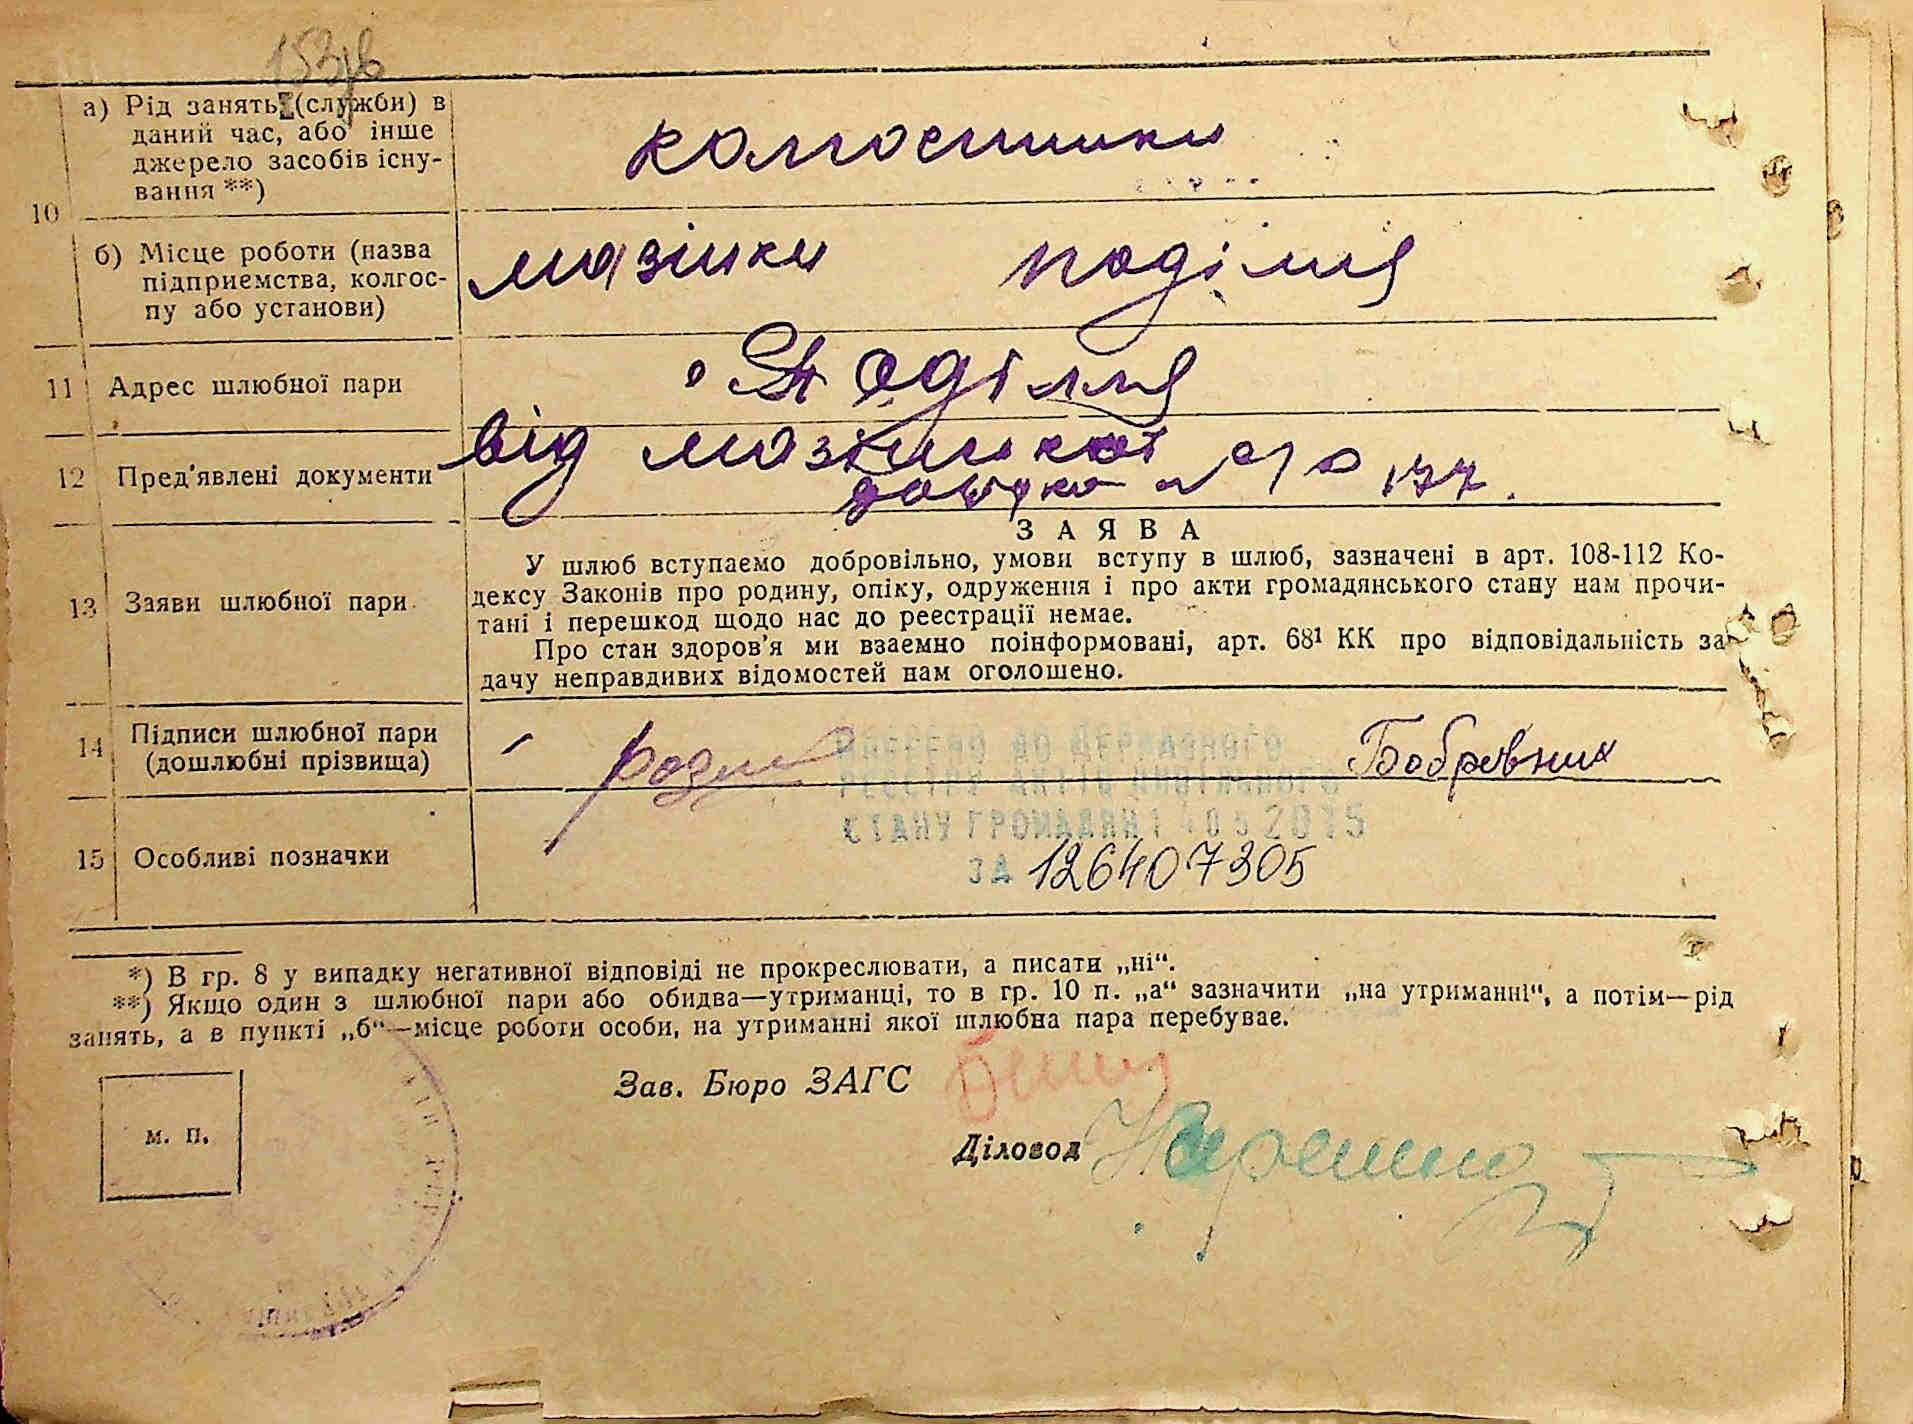 153 зв
а) Рід занять (служби) в
даний час, або інше
джерело засобів існу-
вання **)
колгоспники
10
б) Місце роботи (назва
підприємства, колгос-
пу або установи)
мазінки поділля
11 Адрес шлюбної пари
с Поділля
12 Пред'явлені документи
від мазінкої
довідка № 177.
ЗАЯВА
13 Заяви шлюбної пари
У шлюб вступаємо добровільно, умови вступу в шлюб, зазначені в арт. 108-112 Ко-
дексу Законів про родину, опіку, одруження і про акти громадянського стану нам прочи-
тані і перешкод щодо нас до реестрації немає.
Про стан здоров'я ми взаємно поінформовані, арт. 68¹ КК про відповідальність за
дачу неправдивих відомостей нам оголошено.
14 Підписи шлюбної пари
(дошлюбні прізвища)
Бобревник
ВНЕСЕНО ДО ДЕРЖАВНОГО
РЕЄСТРУ АКТІВ ЦИВІЛЬНОГО
СТАНУ ГРОМАДЯН 14 05 2015
ЗА 126407305
15 Особливі позначки
*) В гр. 8 у випадку негативної відповіді не прокреслювати, а писати „ні“.
**) Якщо один з шлюбної пари або обидва—утриманці, то в гр. 10 п. „а“ зазначити „на утриманні“, а потім—рід
занять, а в пункті „б“—місце роботи особи, на утриманні якої шлюбна пара перебуває.
Зав. Бюро ЗАГС
м. п.
Діловод